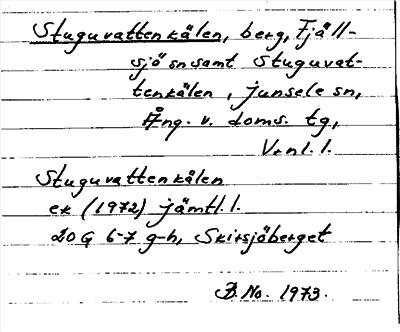 Stuguvattenkälen, berg, Fjäll-
sjö sn samt Stuguvat-
tenkälen, Junsele sn,
Ång. v. doms. tg,
Vrnl. l.
Stuguvattenkälen
ek (1972) jämtl. l.
20G 6-7 g-h, Skirsjöberget
B.No. 1973.